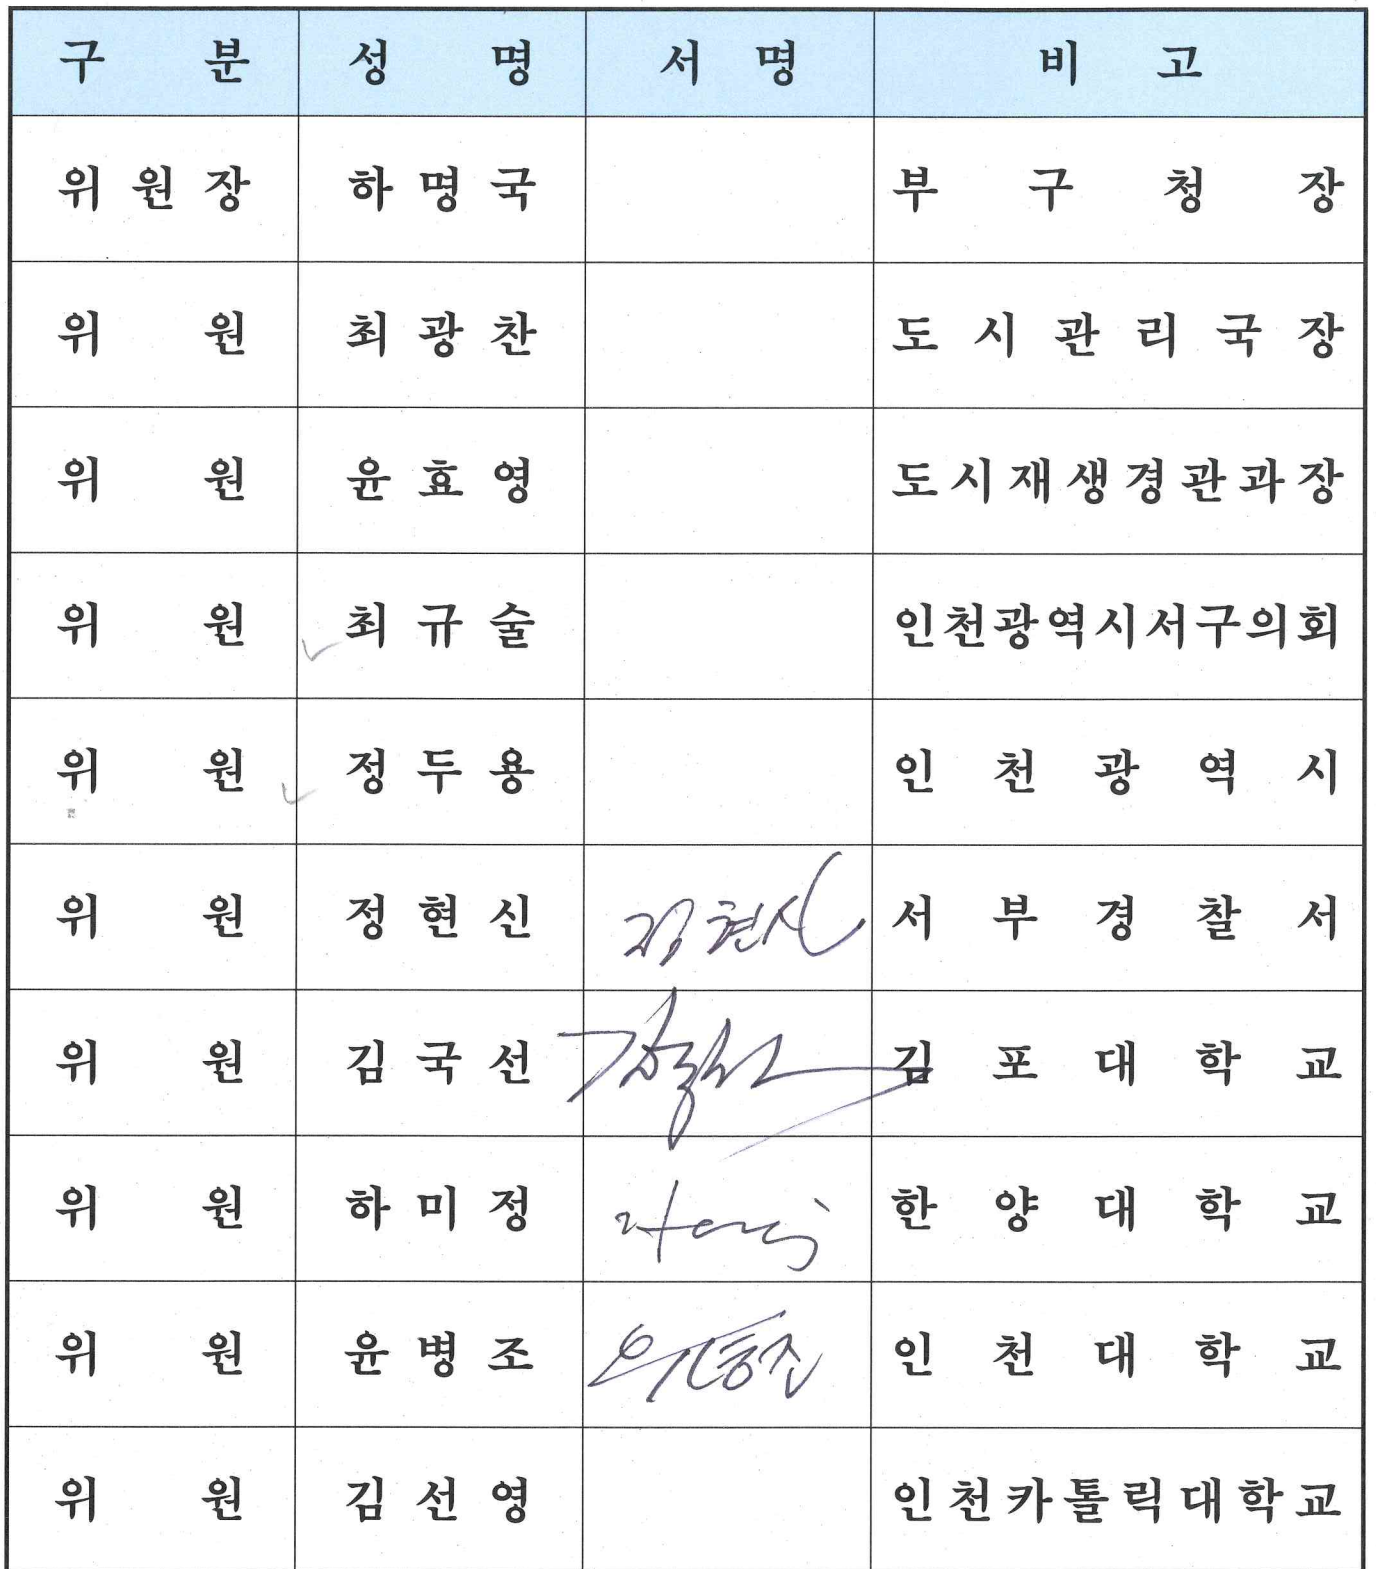 구 분 성 명 서 명 비 고
위 원 장 하 명 국 부 구 청 장
위 원 최 광 찬 도 시 관 리 국 장
위 원 윤 효 영 도 시 재 생 경 관 과 장
위 원 최 규 술 인천광역시서구의회
위 원 정 두 용 인 천 광 역 시
위 원 정 현 신 정현신 서 부 경 찰 서
위 원 김 국 선 김국선 김 포 대 학 교
위 원 하 미 정 한 양 대 학 교
위 원 윤 병 조 인 천 대 학 교
위 원 김 선 영 인 천 카 톨 릭 대 학 교